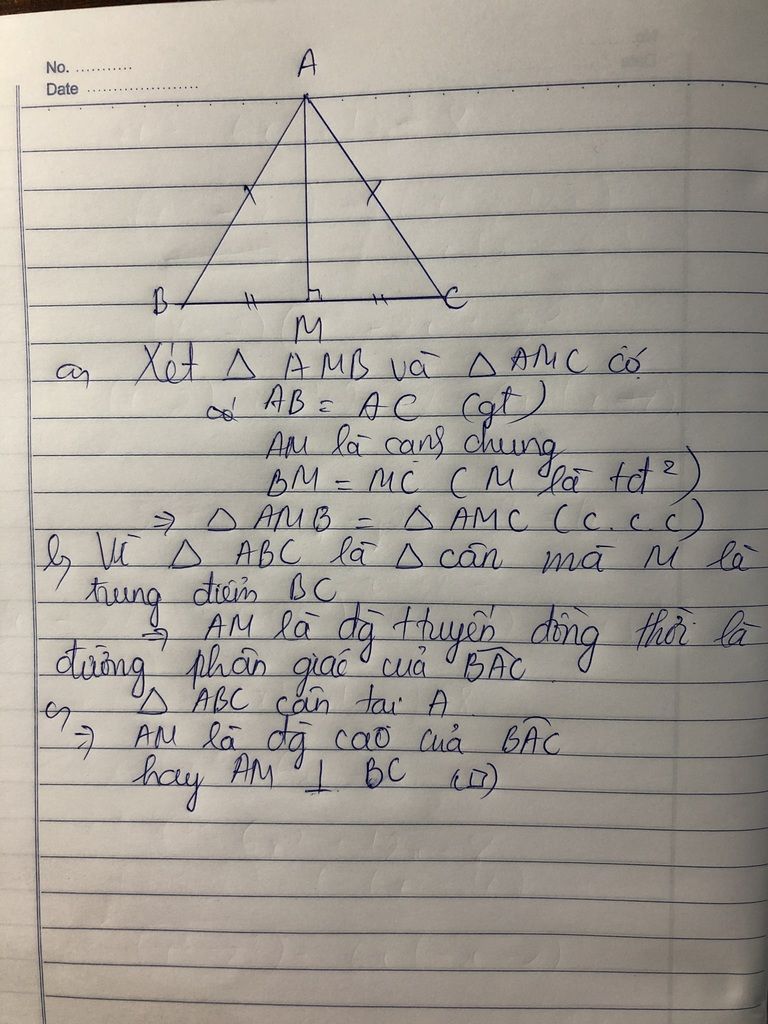 No. ...........
Date ......................
A
B
C
M
a, Xét △ AMB và △ AMC có
AB = AC (gt)
AM là cạnh chung
BM = MC ( M là tđ²)
⇒ △ AMB = △ AMC (c.c.c)
b, Vì △ ABC là △ cân mà M là
trung điểm BC
⇒ AM là đg ttuyến đồng thời là
đường phân giác của \widehat{BAC}
c, △ ABC cân tại A
⇒ AM là đg cao của \widehat{BAC}
hay AM ⊥ BC (□)